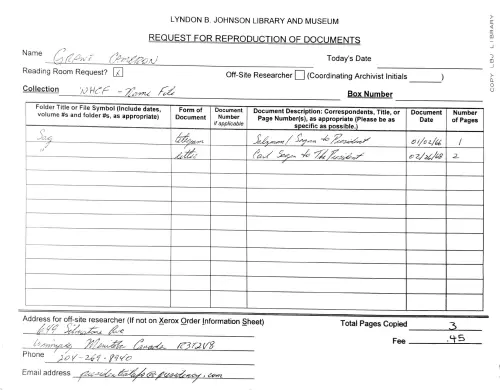 LYNDON B. JOHNSON LIBRARY AND MUSEUM
REQUEST FOR REPRODUCTION OF DOCUMENTS
COPY LBJ LIBRARY
Name Grant Cameron Today's Date
Reading Room Request? Off-Site Researcher (Coordinating Archivist Initials )
Collection WHCF - Name File Box Number
Folder Title or File Symbol (Include dates, volume #s and folder #s, as appropriate)
Form of Document
Document Number if applicable
Document Description: Correspondents, Title, or Page Number(s), as appropriate (Please be as specific as possible.)
Document Date
Number of Pages
telegram to President 01/02/66 1
" letter to The President 2
Address for off-site researcher (If not on Xerox Order Information Sheet)
649 Ave
Manitoba Canada R3T2V8
Phone 204-269-
Email address
Total Pages Copied 3
Fee .45